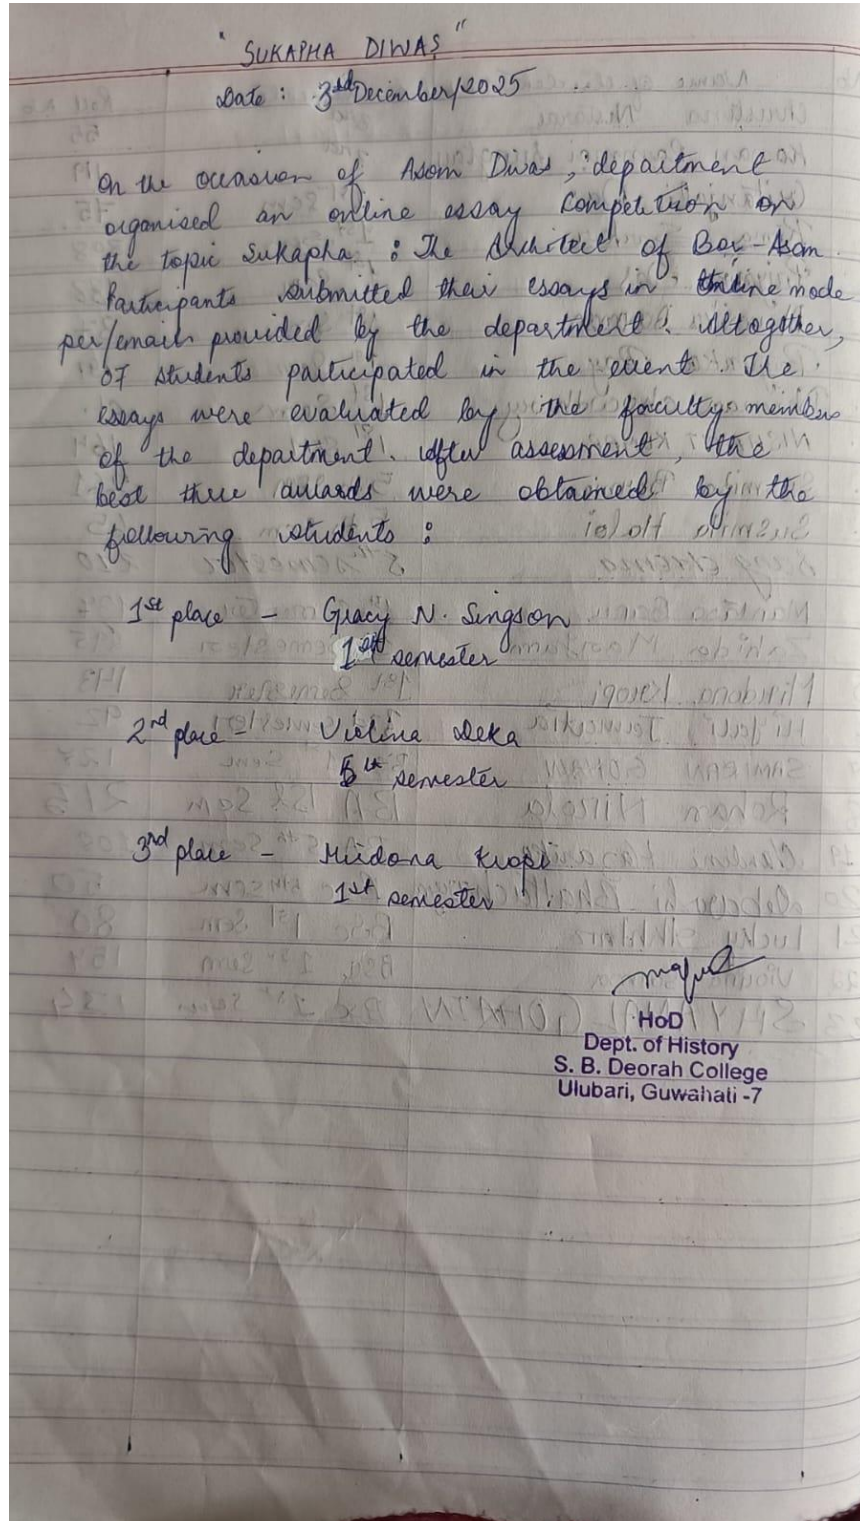 "SUKAPHA DIWAS"
Date : 3rd December/2025
On the occasion of Asom Diwas, department
organised an online essay competition on
the topic Sukapha : The Architect of Bor-Asom
Participants submitted their essays in Online mode
per/email provided by the department. Altogether,
07 students participated in the event. The
essays were evaluated by the faculty members
of the department. After assessment, the
best three awards were obtained by the
following students :
1st place - Gracy N. Singson
1st semester
2nd place - Violina Deka
5th semester
3rd place - Mirdona Kropi
1st semester
HoD
Dept. of History
S. B. Deorah College
Ulubari, Guwahati -7